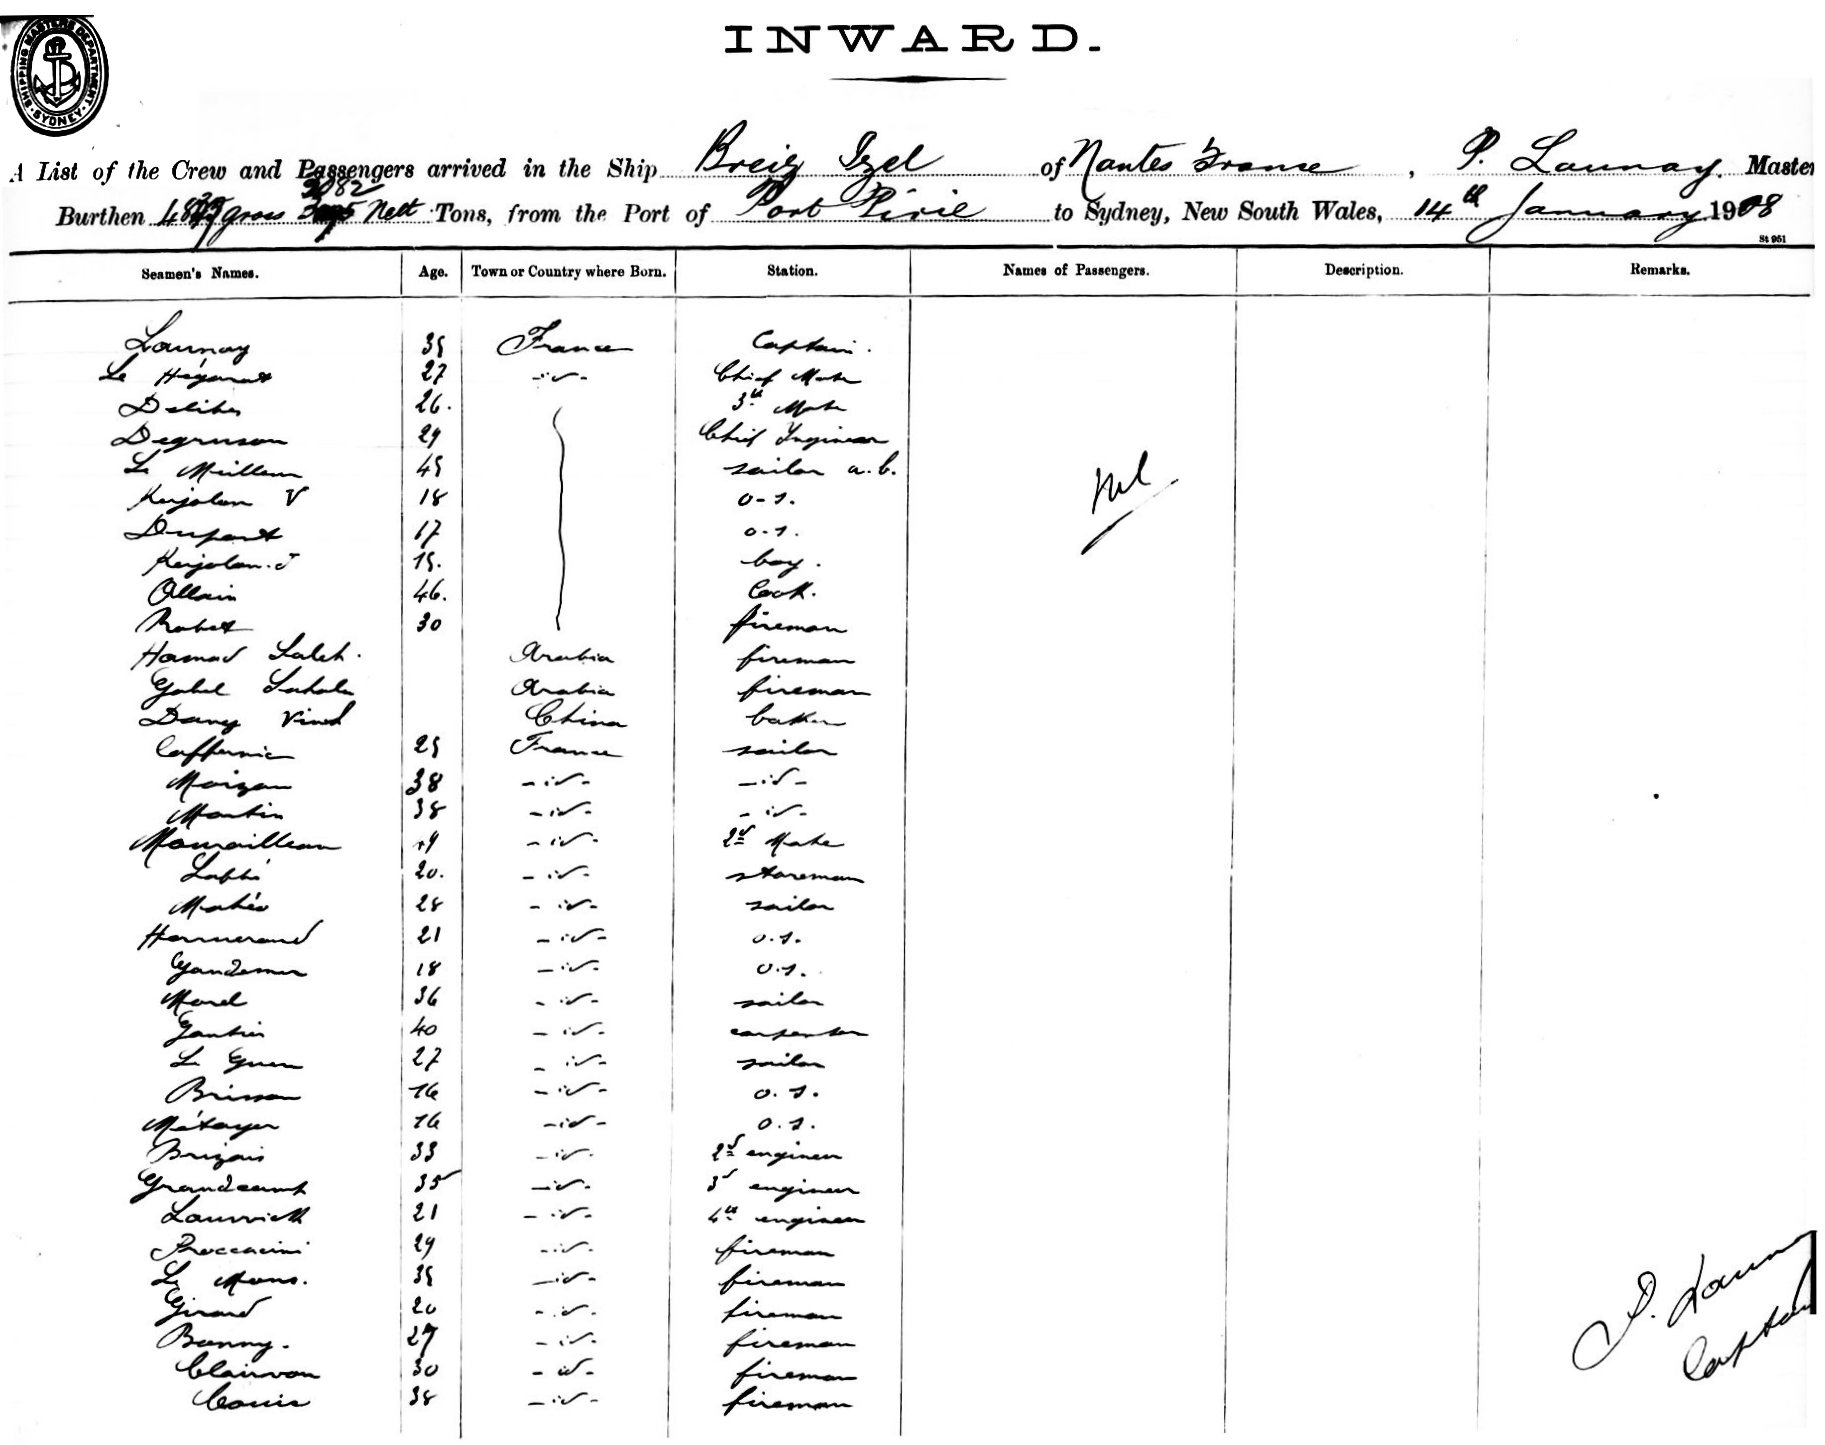 SHIPPING MASTERS DEPARTMENT · SYDNEY ·
INWARD.
A List of the Crew and Passengers arrived in the Ship Breiz Izel of Nantes France, P. Launay. Master
Burthen gross 3082 Nett Tons, from the Port of Port Pirie to Sydney, New South Wales, 14th January 1908
St 951
Seamen's Names. Age. Town or Country where Born. Station. Names of Passengers. Description. Remarks.
Launay 35 France Captain.
Le Hégarat 27 -id- Chief Mate
Delibes 26. 3th Mate
Degruson 29 Chief Ingineer
Le Meilleur 45 sailor a.b.
Nil
Kerjolan V 18 o-s.
Dupont 17 o.s.
Kerjolan. J 15. boy.
Ollain 46. Cook.
Robert 30 fireman
Hamad Saleh. Arabia fireman
Arabia fireman
Dang Vinh China baker
25 France sailor
Moizan 38 -id- -id-
Martin 38 -id- -id-
-id- 2d Mate
Labbé 20. -id- storeman
Mahéo 28 -id- sailor
21 -id- o.s.
18 -id- o.s.
Morel 36 -id- sailor
Gautier 40 -id- carpenter
Le Guen 27 -id- sailor
Brisson 16 -id- o.s.
Métayer 16 -id- o.s.
Brizais 33 -id- 2d engineer
Grandcamp 35 -id- 3d engineer
21 -id- 4th engineer
Proccacini 29 -id- fireman
Le Mons. 35 -id- fireman
Girard 20 -id- fireman
Bonny. 27 -id- fireman
30 -id- fireman
38 -id- fireman
P. Launay
Captain